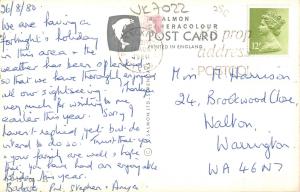 26/8/80
We are having a
fortnight's holiday
in this area & the
weather has been splendid
so that we have thoroughly enjoyed
all our sightseeing. Thanks
very much for writing to me
earlier this year. Sorry I
haven't replied yet but do
intend to do so. Trust that you
& your family are well & hope
that you have had an enjoyable
holiday this year.
Pat, Stephen &
VK7022
SALMON
CAMERACOLOUR
POST CARD
PRINTED IN ENGLAND
address
POSTCODE
12P
Miss M Harrison
24, Brookwood Close,
Walton,
Warrington
WA4 6NY